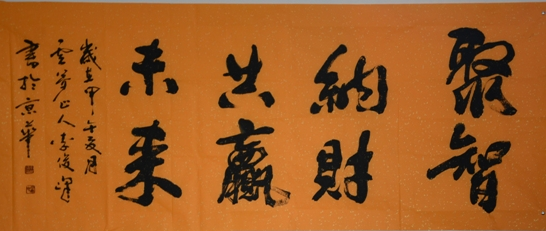 聚智
納財
共赢
未来
歲在甲午夏月
云夢山人李俊
書於京華